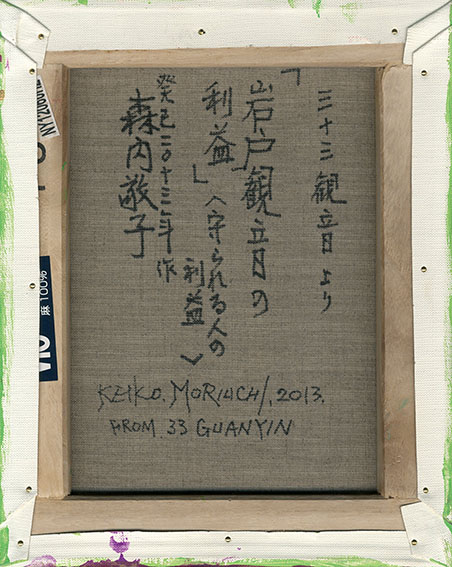 三十三観音より
「岩戸観音の
利益」〈守られる人の
利益〉
癸巳二〇十三年作
森内敬子
KEIKO. MORIUCHI, 2013.
FROM. 33 GUANYIN
麻 100%